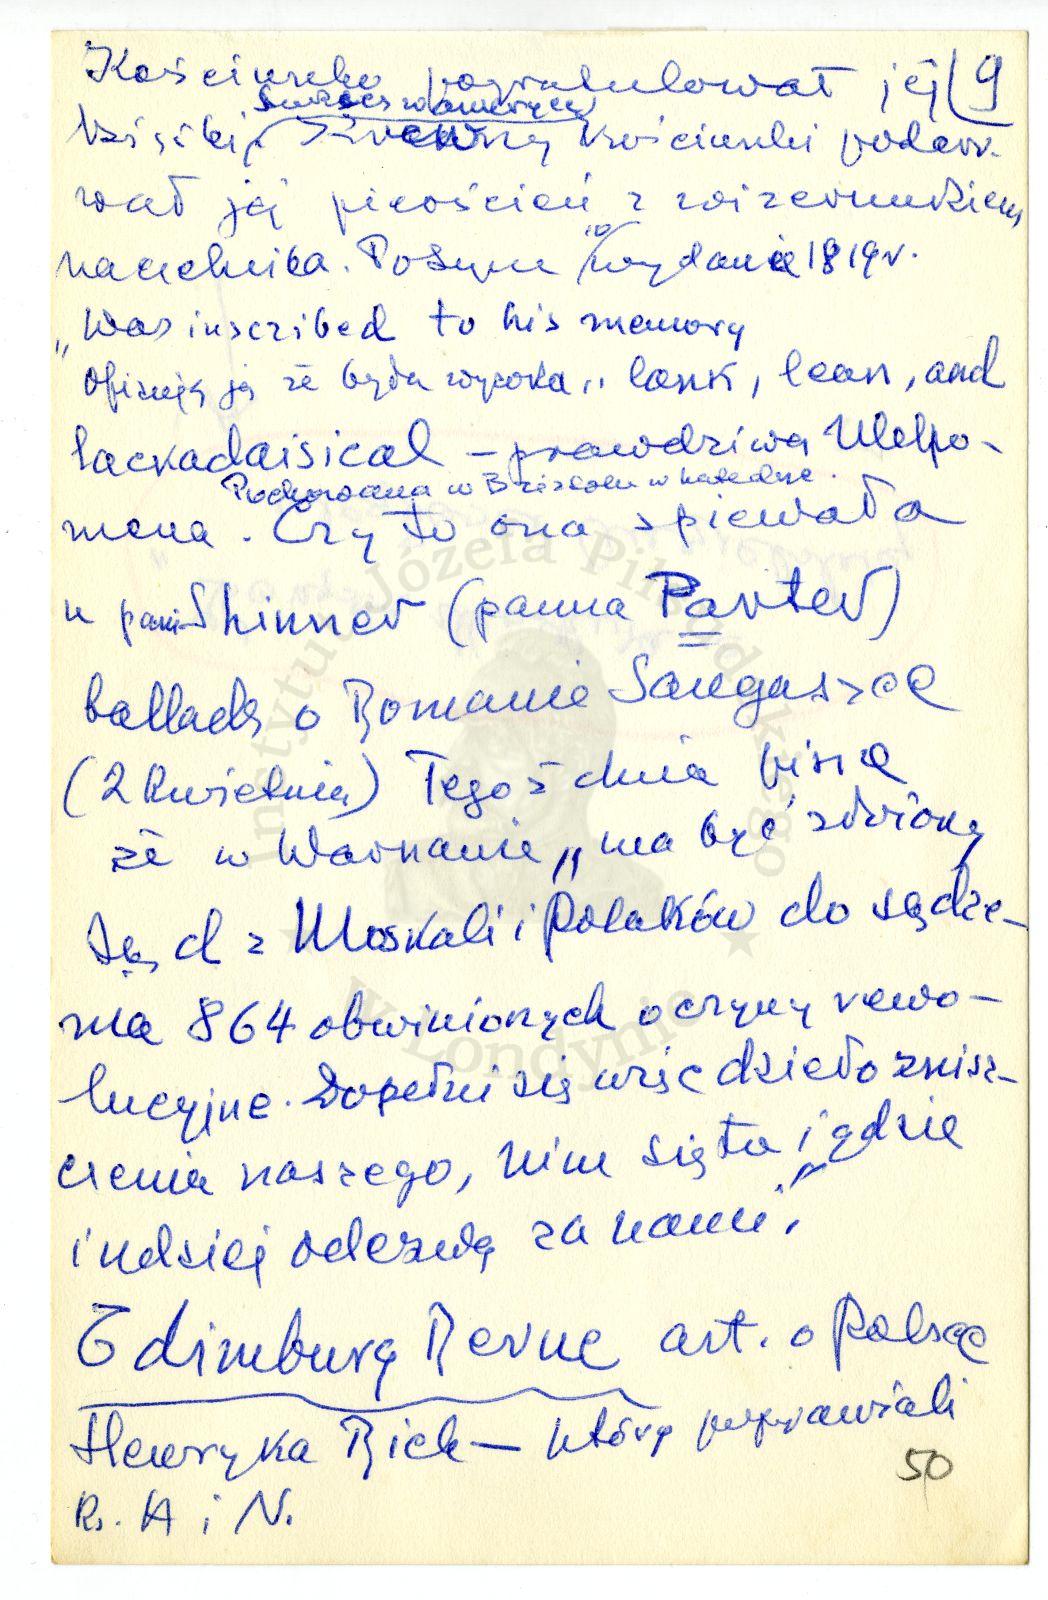 Kościuszko pogratulował jej 9
sukces w Ameryce
książki, Krewny Kościuszki podaro-
wał jej pierścień z wizerunkiem
naczelnika. Potem 10 wydanie 1819 r.
"Was inscribed to his memory
Opisują ją że była wysoka "lank, lean, and
lackadaisical – prawdziwa Melpo-
Pochowana w Bristolu w katedrze.
mena. Czy to ona śpiewała
u pani Shinner (panna Parter)
balladę o Romanie Sanguszce
(2 kwietnia) Tegoż dnia piszę
że w Warszawie "ma być złożony
sąd z Moskali i Polaków do sądze-
nia 864 obwinionych o czyny rewo-
lucyjne. Dopełni się więc dzieło znisz-
czenia naszego, nim się tu i gdzie
indziej odezwą za nami."
Edimburg Revue art. o Polsce
Henryka Rich – który poprawiali
Ks. A i N.
50
Instytut Józefa Piłsudskiego
w Londynie